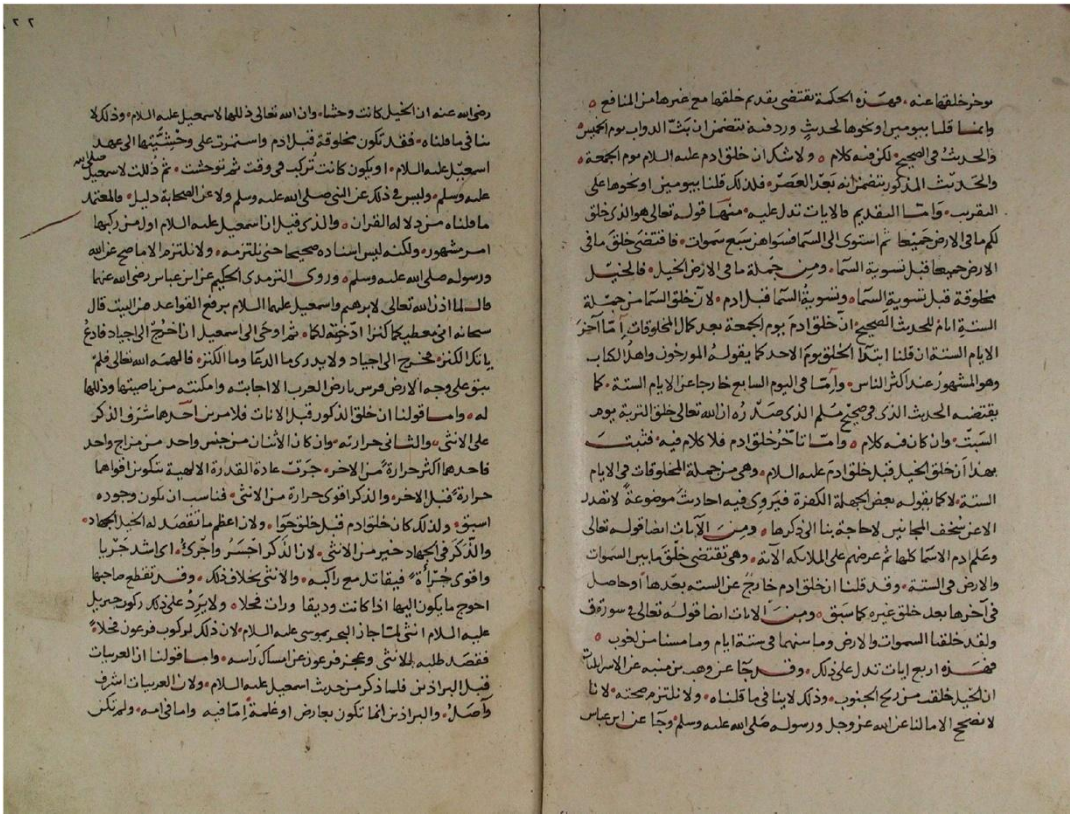 موخر خلقها عنه • فهذه الحكمة تقتضى بقديم خلقها مع غيرها من المنافع ٥
وانما قلنا بيومين او نحوها لحديث ورد فيه يتضمن ان بث الدواب يوم الخميس
والحديث فى الصحيح • لكن فيه كلام ٥ ولا شك ان خلق ادم عليه السلام يوم الجمعة •
والحديث المذكور يتضمن انه بعد العصر • فلذلك قلنا بيومين او نحوها على
التقريب • واما التقديم فالايات تدل عليه • منها قوله تعالى هو الذى خلق
لكم ما فى الارض جميعا ثم استوى الى السما فسواهن سبع سموات • فاقتضى خلق ما فى
الارض جميعا قبل تسوية السما • ومن جملة ما فى الارض الخيل • فالخيل
مخلوقة قبل تسوية السما • وتسوية السما قبل ادم • لان خلق السما من جملة
الستة ايام للحديث الصحيح ان خلق ادم يوم الجمعة بعد كمال المخلوقات اما آخر
الايام الستة ان قلنا ابتدا الخلق يوم الاحد كما يقوله المورخون واهل الكتاب
وهو المشهور عند اكثر الناس • واما فى اليوم السابع خارجا عن الايام الستة • كما
يقتضيه الحديث الذى فى صحيح مسلم الذى صدره ان الله تعالى خلق التربة يوم
السبت • وان كان فيه كلام ٥ واما تاخر خلق ادم فلا كلام فيه • فثبت
بهذا ان خلق الخيل قبل خلق ادم عليه السلام • وهى من جملة المخلوقات فى الايام
الستة • لا كما يقوله بعض الجهلة الكفرة فيروى فيه احاديث موضوعة لا تصدر
الا عن سخف المجانين لا حاجة بنا الى ذكرها • ومن الآيات ايضا قوله تعالى
وعلم ادم الاسما كلها ثم عرضهم على الملائكة الآية • وهى تقتضى خلق ما بين السموات
والارض فى الستة • وقد قلنا ان خلق ادم خارج عن الستة بعدها او حاصل
فى آخرها بعد خلق غيره كما سبق • ومن الايات ايضا قوله تعالى فى سورة ق
ولقد خلقنا السموات والارض وما بينهما فى ستة ايام وما مسنا من لغوب ٥
فهذه اربع ايات تدل على ذلك • وقد جا عن وهب بن منبه عن الاسرايليات
ان الخيل خلقت من ريح الجنوب • وذلك لا ينافى ما قلناه • ولا نلتزم صحته • لانا
لا نصحح الا ما لنا عن الله عز وجل ورسوله صلى الله عليه وسلم • وجا عن ابن عباس
٢٢
رضى الله عنه ان الخيل كانت وحشا • وان الله تعالى ذللها لاسمعيل عليه السلام • وذلك لا
ينافى ما قلناه • فقد تكون مخلوقة قبل ادم واستمرت على وحشيتها الى عهد
اسمعيل عليه السلام • او يكون كانت تركب فى وقت ثم توحشت • ثم ذللت لاسمعيل صلى الله
عليه وسلم • وليس فى ذلك عن النبى صلى الله عليه وسلم ولا عن الصحابة دليل • فالمعتمد
ما قلناه من دلالة القران ٥ والذى قيل ان اسمعيل عليه السلام اول من ركبها
امر مشهور • ولكنه ليس اسناده صحيحا حتى نلتزمه • ولا نلتزم الا ما صح عن الله
ورسوله صلى الله عليه وسلم • وروى الترمذى الحكيم عن ابن عباس رضى الله عنهما
قال لما اذن الله تعالى لابرهيم واسمعيل عليهما السلام برفع القواعد من البيت قال
سبحانه انى معطيكما كنزا ادخرته لكما • ثم اوحى الى اسمعيل ان اخرج الى اجياد فادع
ياتك الكنز • فخرج الى اجياد ولا يدرى ما الدعا وما الكنز • فالهمه الله تعالى فلم
يبق على وجه الارض فرس بارض العرب الا اجابته وامكنته من ناصيتها وذللها
له • واما قولنا ان خلق الذكور قبل الاناث فلامرين احدهما شرف الذكر
على الانثى • والثانى حرارته • وان كان الاثنان من جنس واحد من مزاج واحد
فاحدهما اكثر حرارة من الاخر • جرت عادة القدرة الالهية بتكوين اقواهما
حرارة قبل الاخر • والذكر اقوى حرارة من الانثى • فناسب ان يكون وجوده
اسبق • ولذلك كان خلق ادم قبل خلق حوا • ولان اعظم ما تقصد له الخيل الجهاد •
والذكر فى الجهاد خير من الانثى • لان الذكر اجسر واجرى • اى اشد جريا
واقوى جراة • فيقاتل مع راكبه • والانثى بخلاف ذلك • وقد تقطع صاحبها
احوج ما يكون اليها اذا كانت وديقا ورات فحلا ٥ ولا يرد على ذلك ركوب جبريل
عليه السلام انثى لما جاز البحر بموسى عليه السلام • لان ذلك لركوب فرعون فحلا
فقصد طلبه للانثى • وعجز فرعون عن امساك راسه • واما قولنا ان العربيات
قبل البراذين • فلما ذكر من حديث اسمعيل عليه السلام • ولان العربيات اشرف
وآصل • والبراذين انما تكون بعارض او علة • اما فيه واما فى امه • ولم تكن